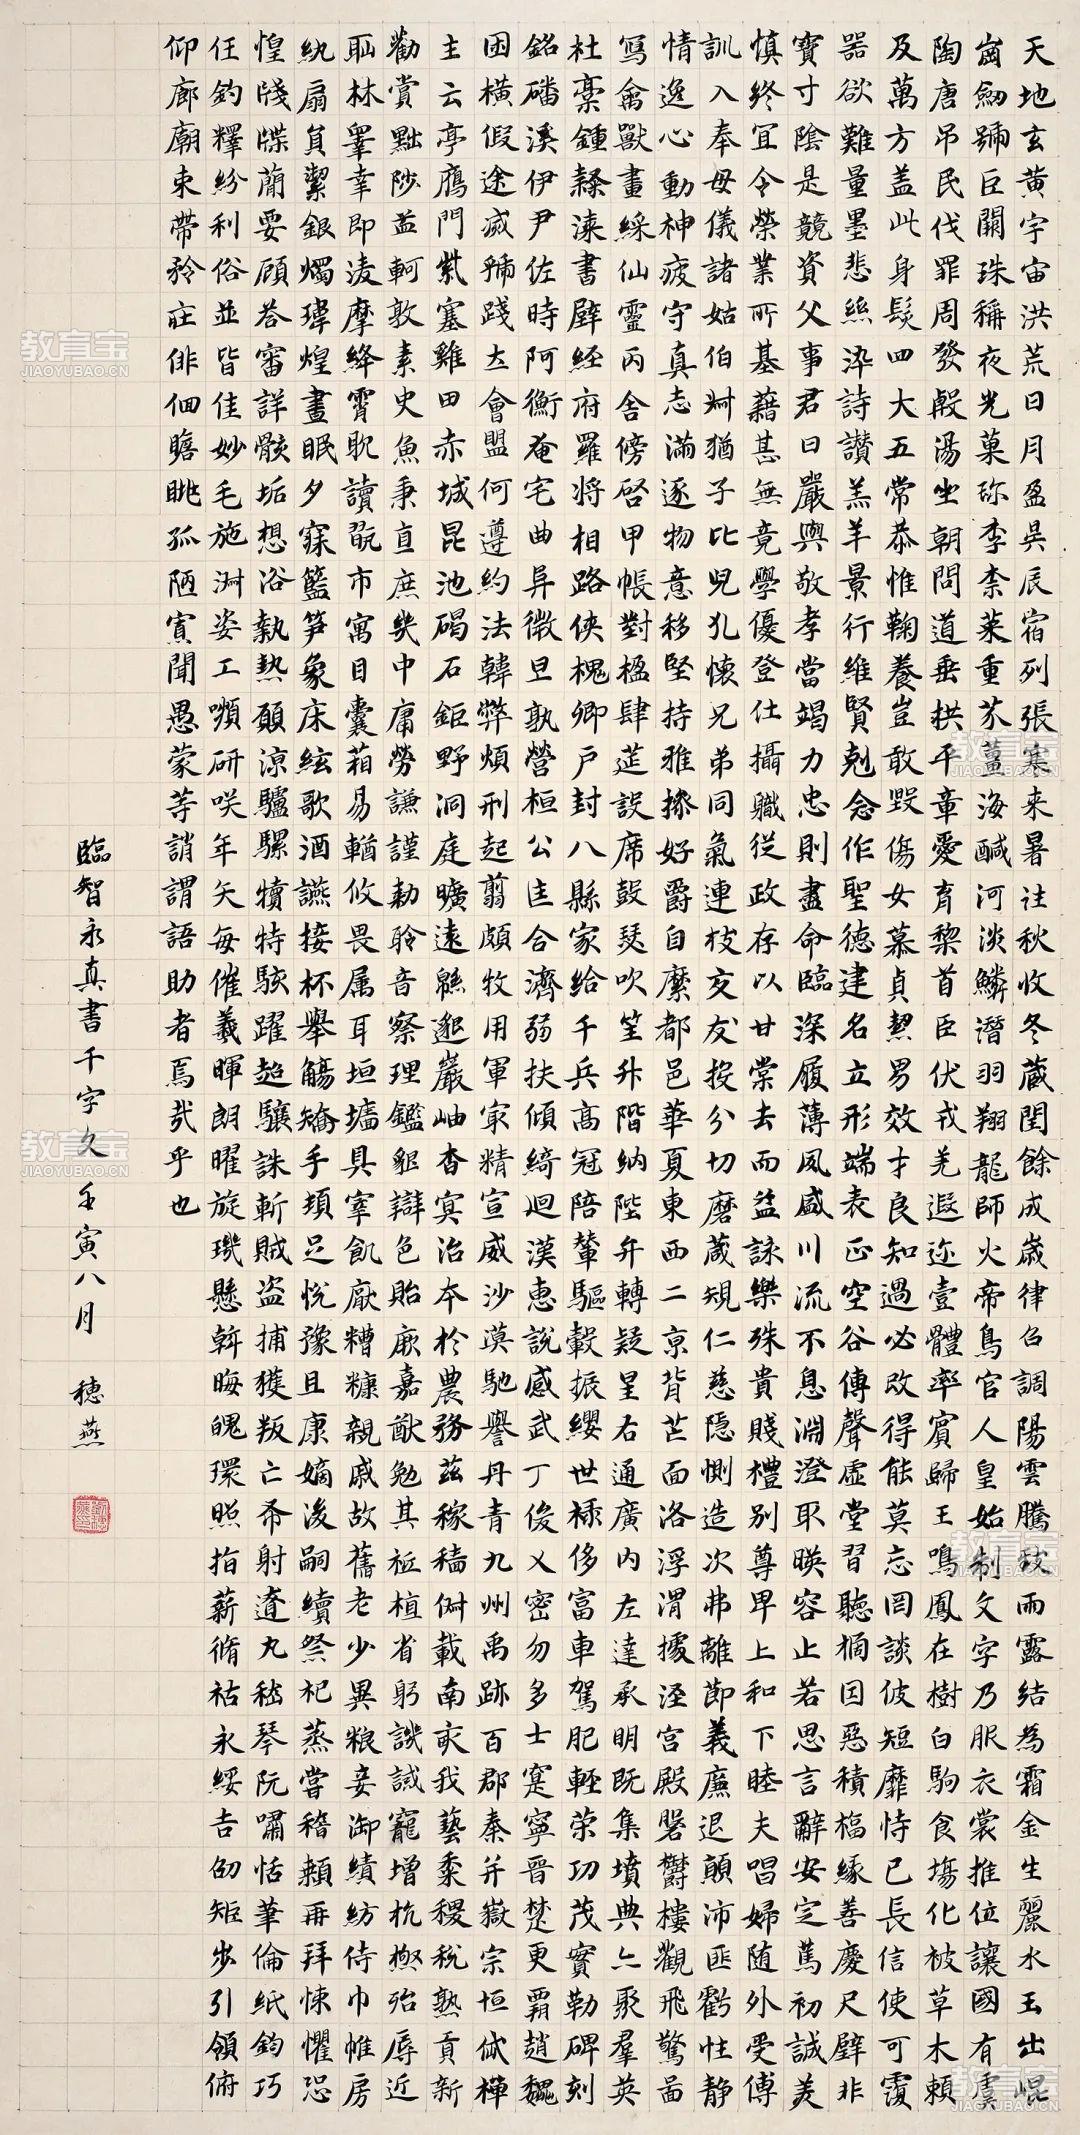 天地玄黄宇宙洪荒日月盈昃辰宿列張寒来暑往秋收冬藏閏餘成歲律吕調陽雲騰致雨露結為霜金生麗水玉出崐
崗劒號巨闕珠稱夜光菓珎李柰菜重芥薑海醎河淡鱗潛羽翔龍師火帝鳥官人皇始制文字乃服衣裳推位讓國有虞
陶唐吊民伐罪周發殷湯坐朝問道垂拱平章愛育黎首臣伏戎羌遐迩壹體率賓歸王鳴鳳在樹白駒食塲化被草木賴
及萬方盖此身髮四大五常恭惟鞠養豈敢毀傷女慕貞絜男效才良知過必改得能莫忘罔談彼短靡恃已長信使可覆
器欲難量墨悲絲染詩讚羔羊景行維賢剋念作聖德建名立形端表正空谷傳聲虛堂習聽禍因惡積福緣善慶尺璧非
寶寸陰是競資父事君曰嚴與敬孝當竭力忠則盡命臨深履薄夙盛川流不息淵澄取暎容止若思言辭安定篤初誠美
慎終宜令榮業所基藉甚無竟學優登仕攝職從政存以甘棠去而益詠樂殊貴賤禮別尊卑上和下睦夫唱婦随外受傅
訓入奉母儀諸姑伯叔猶子比兒孔懷兄弟同氣連枝交友投分切磨箴規仁慈隱惻造次弗離節義廉退顛沛匪虧性静
情逸心動神疲守真志滿逐物意移堅持雅操好爵自縻都邑華夏東西二京背芒面洛浮渭據涇宮殿盤鬱樓觀飛驚啚
寫禽獸畫綵仙靈丙舍傍啓甲帳對楹肆莚設席鼓瑟吹笙升階納陛弁轉疑星右通廣内左達承明既集墳典亦聚群英
杜稾鍾隸漆書壁經府羅將相路俠槐卿户封八縣家給千兵高冠陪輦驅轂振纓世祿侈富車駕肥輕策功茂實勒碑刻
銘磻溪伊尹佐時阿衡奄宅曲阜微旦孰營桓公匡合濟弱扶傾綺迴漢惠說感武丁俊乂密勿多士寔寧晉楚更霸趙魏
困横假途滅虢踐土會盟何遵約法韓弊煩刑起翦頗牧用軍最精宣威沙漠馳譽丹青九州禹跡百郡秦并嶽宗恒岱禪
主云亭鴈門紫塞雞田赤城昆池碣石鉅野洞庭曠遠緜邈巖岫杳冥治本於農務茲稼穡俶載南畝我藝黍稷稅熟貢新
勸賞黜陟孟軻敦素史魚秉直庶幾中庸勞謙謹勑聆音察理鑑貌辯色貽厥嘉猷勉其祗植省躬譏誡寵增抗極殆辱近
耻林睪幸即淩摩絳霄耽讀翫市寓目囊箱易輶攸畏属耳垣墻具宰飢厭糟糠親戚故舊老少異粮妾御績紡侍巾帷房
紈扇員絜銀燭瑋煌晝眠夕寐籃笋象床絃歌酒讌接杯舉觴矯手頓足悅豫且康嫡後嗣續祭祀蒸嘗稽顙再拜悚懼恐
惶牋牒簡要顧答審詳骸垢想浴執熱願涼驢騾犢特駭躍超驤誅斬賊盜捕獲叛亡布射遼丸嵇琴阮嘯恬筆倫紙鈞巧
任釣釋紛利俗並皆佳妙毛施淑姿工嚬研咲年矢每催羲暉朗曜旋璣懸斡晦魄環照指薪脩祜永綏吉劭矩步引領俯
仰廊廟束帶矜莊俳佪瞻眺孤陋寡聞愚蒙等誚謂語助者焉哉乎也
臨智永真書千字文 壬寅八月 穗燕
教育宝
JIAOYUBAO.CN
教育宝
JIAOYUBAO.CN
教育宝
JIAOYUBAO.CN
教育宝
JIAOYUBAO.CN
教育宝
JIAOYUBAO.CN